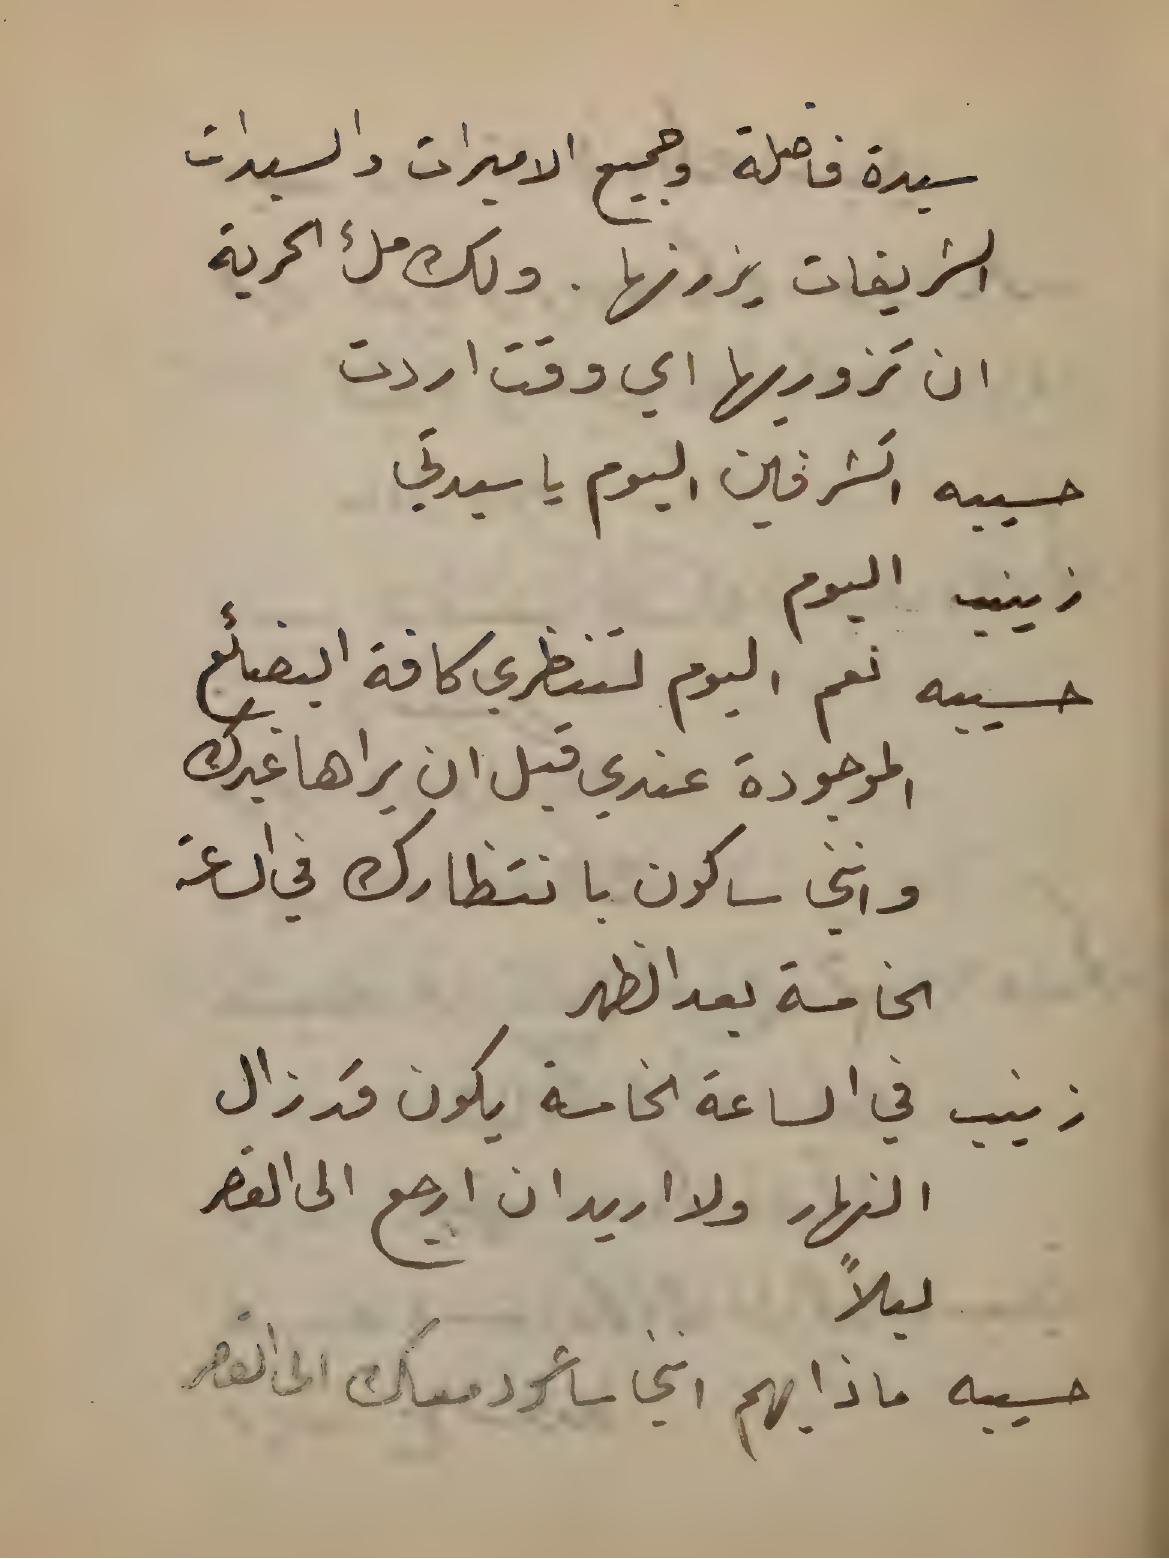 سيدة فاضلة وجميع الاميرات والسيدات
الشريفات يزرنها . ولك ملئ الحرية
ان تزوريها اي وقت اردت
حسيبه اتشرفين اليوم يا سيدتي
زينب اليوم
حسيبه نعم اليوم لتنظري كافة البضائع
الموجودة عندي قبل ان يراها غيرك
وانني ساكون بانتظارك في الساعة
الخامسة بعد الظهر
زينب في الساعة الخامسة يكون قد زال
النهار ولا اريد ان ارجع الى القصر
ليلاً
حسيبه ماذا يهم انني ساعود معك الى القصر